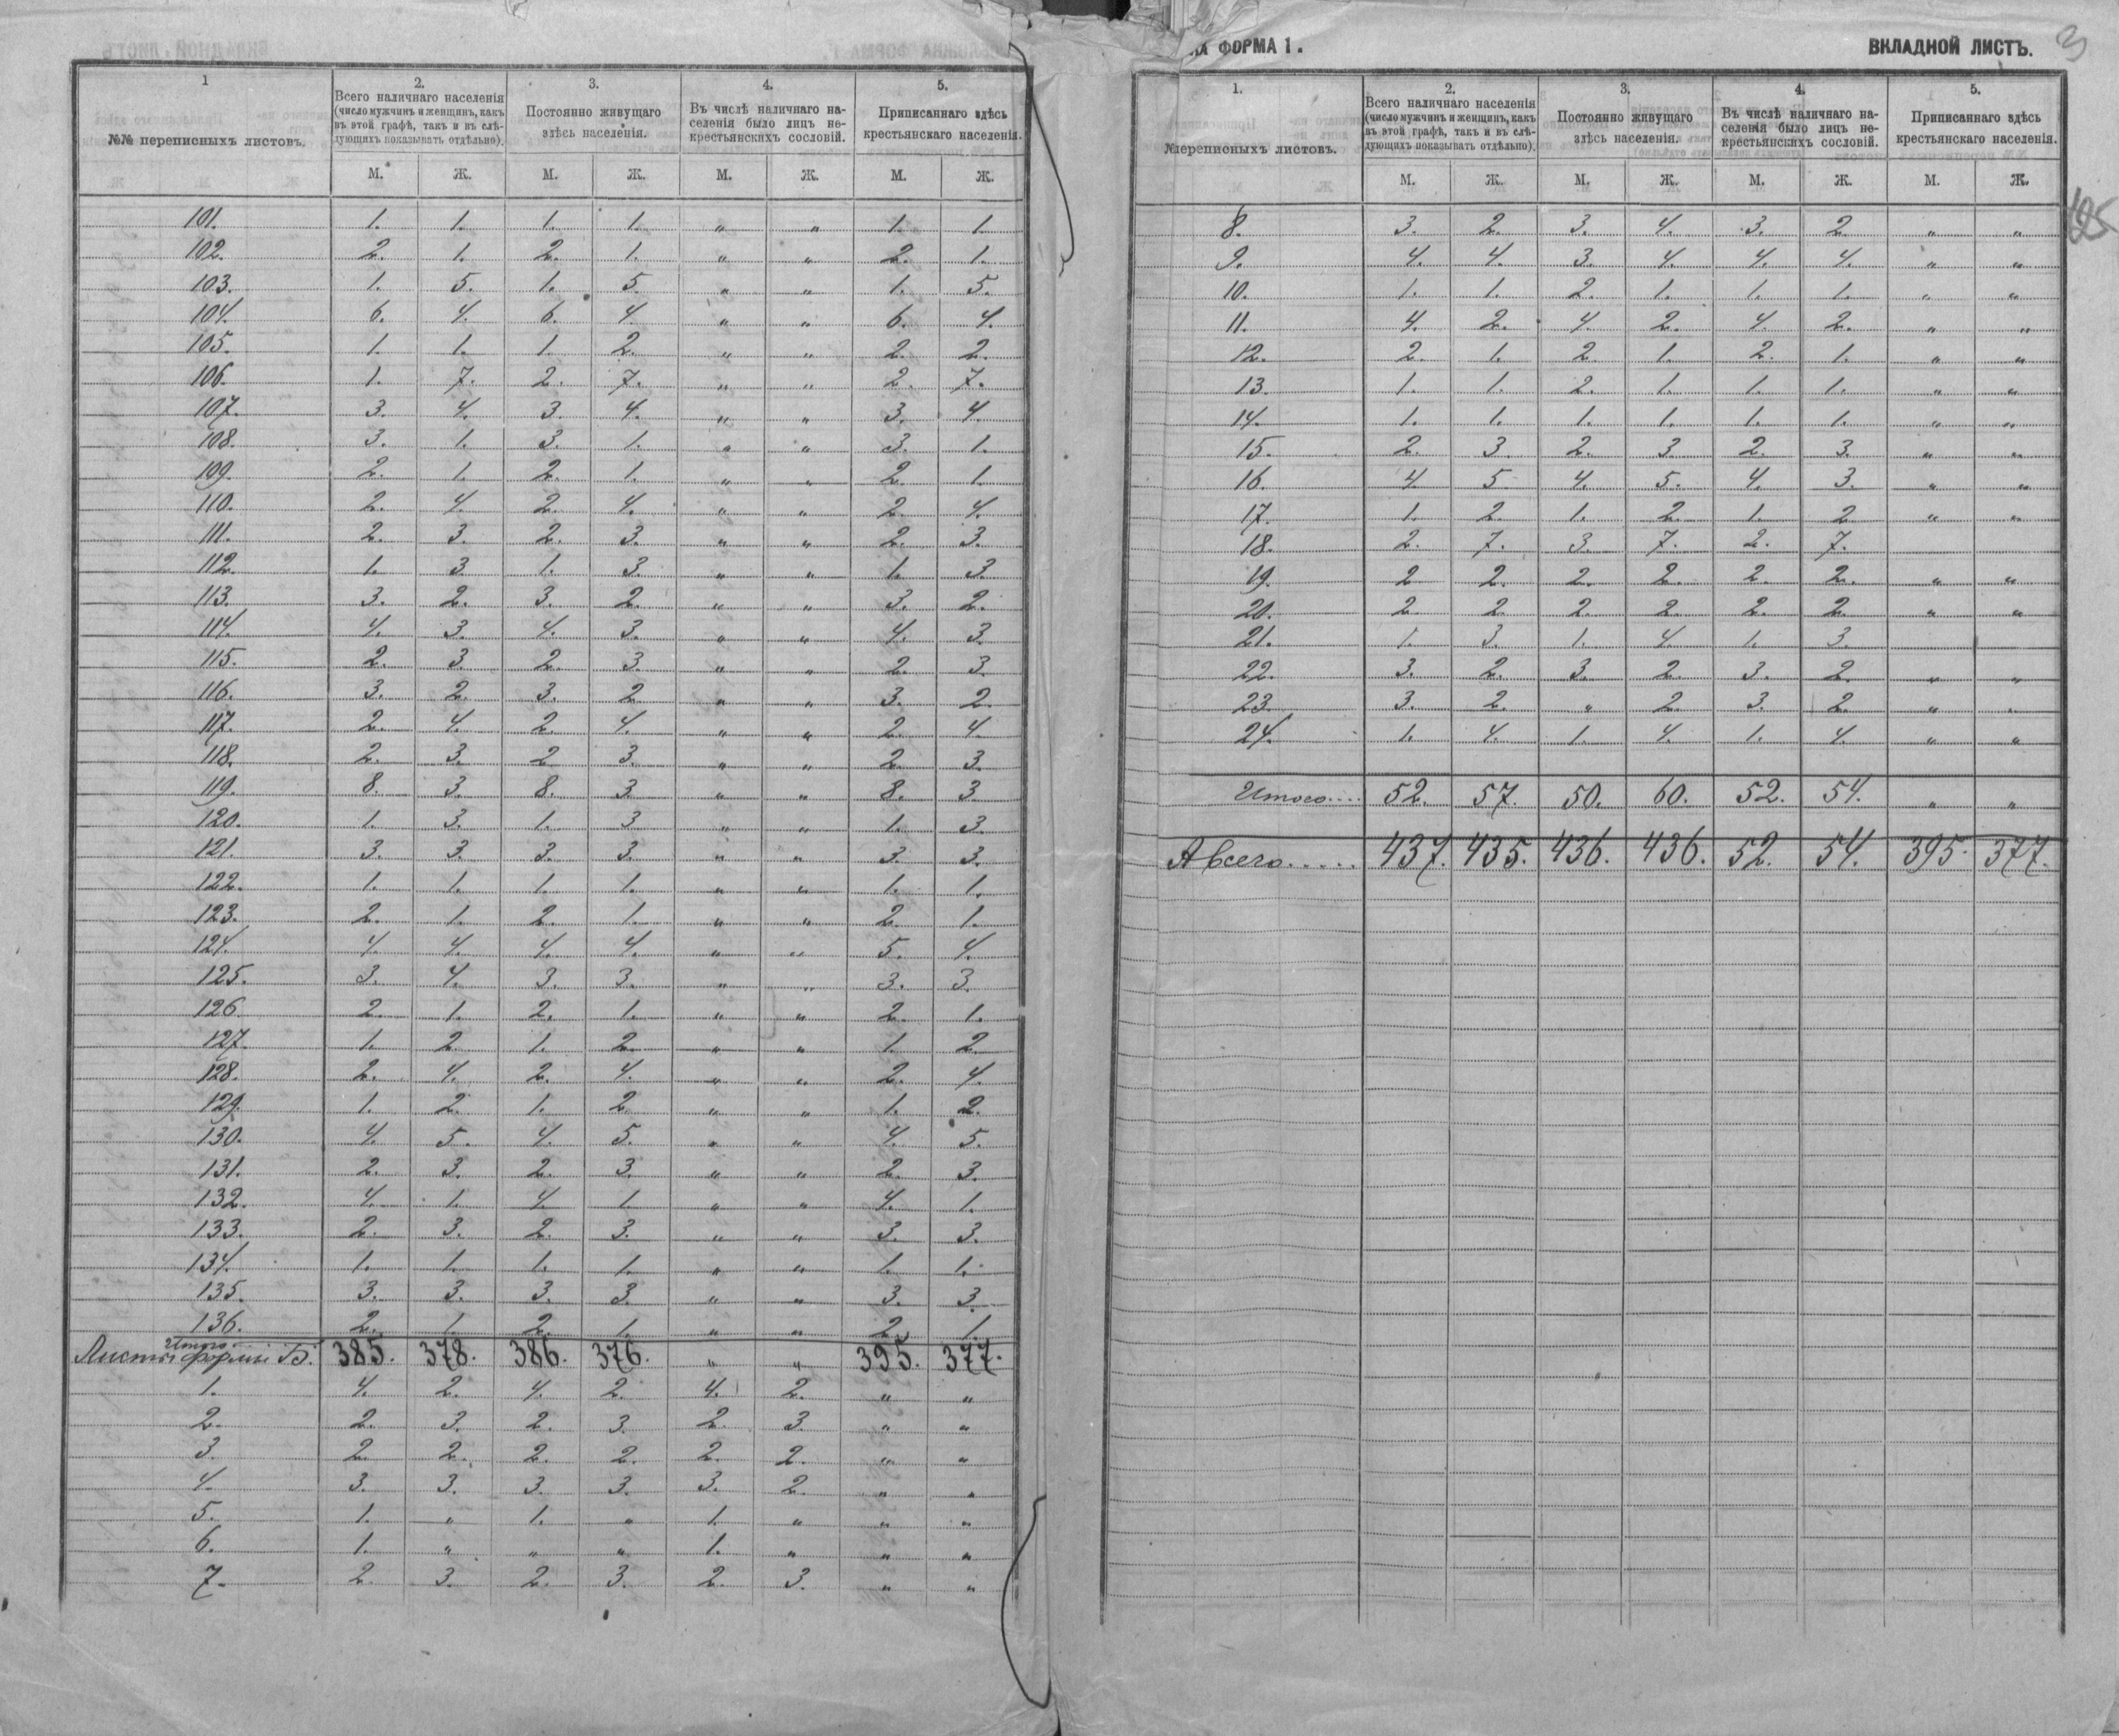 1
2.
3.
4.
5.
№№ переписныхъ листовъ.
Всего наличнаго населенія
(число мужчинъ и женщинъ, какъ
въ этой графѣ, такъ и въ слѣ-
дующихъ показывать отдѣльно).
Постоянно живущаго
здѣсь населенія.
Въ числѣ наличнаго на-
селенія было лицъ не-
крестьянскихъ сословій.
Приписаннаго здѣсь
крестьянскаго населенія.
М. Ж. М. Ж. М. Ж. М. Ж.
101. 1. 1. 1. 1. „ „ 1. 1.
102. 2. 1. 2. 1. „ „ 2. 1.
103. 1. 5. 1. 5. „ „ 1. 5.
104. 6. 4. 6. 4. „ „ 6. 4.
105. 1. 1. 1. 2. „ „ 2. 2.
106. 1. 7. 2. 7. „ „ 2. 7.
107. 3. 4. 3. 4. „ „ 3. 4
108. 3. 1. 3. 1. „ „ 3. 1.
109. 2. 1. 2. 1. „ „ 2. 1.
110. 2. 4. 2. 4. „ „ 2. 4.
111. 2. 3. 2. 3. „ „ 2. 3.
112. 1. 3. 1. 3. „ „ 1. 3.
113. 3. 2. 3. 2. „ „ 3. 2.
114. 4. 3. 4. 3. „ „ 4. 3.
115. 2. 3. 2. 3. „ „ 2. 3.
116. 3. 2. 3. 2. „ „ 3. 2.
117. 2. 4. 2. 4. „ „ 2. 4.
118. 2. 3. 2 3. „ „ 2. 3.
119. 8. 3. 8. 3. „ „ 8. 3.
120. 1. 3. 1. 3 „ „ 1. 3.
121. 3. 3. 3. 3. „ „ 3. 3.
122. 1. 1. 1. 1. „ „ 1. 1.
123. 2. 1. 2. 1. „ „ 2. 1.
124. 4. 4. 4. 4. „ „ 5. 4.
125. 3. 4. 3. 3. „ „ 3. 3.
126. 2. 1. 2. 1. „ „ 2. 1.
127. 1. 2 1. 2. „ „ 1. 2
128. 2. 4. 2. 4. „ „ 2. 4.
129. 1. 2. 1. 2 „ „ 1. 2.
130. 4. 5. 4. 5. „ „ 4. 5.
131. 2. 3. 2. 3. „ „ 2. 3.
132. 4. 1. 4. 1. „ „ 4. 1.
133. 2. 3. 2. 3. „ „ 3. 3.
134. 1. 1. 1. 1. „ „ 1. 1.
135. 3. 3. 3. 3. „ „ 3. 3.
136. 2. 1. 2. 1. „ „ 2. 1.
Итого 385. 378. 386. 376. „ „ 395. 377.
Листы формы Б.
1. 4. 2. 4. 2. 4. 2. „ „
2. 2. 3. 2. 3. 2. 3. „ „
3. 2. 2. 2. 2. 2. 2. „ „
4. 3. 3. 3. 3. 3. 2. „ „
5. 1. „ 1. „ 1. „ „ „
6. 1. „ „ „ 1. „ „ „
7. 2. 3. 2. 3. 2. 3. „ „
ФОРМА 1.
ВКЛАДНОЙ ЛИСТЪ.
3
1.
2.
3.
4.
5.
№переписныхъ листовъ.
Всего наличнаго населенія
(число мужчинъ и женщинъ, какъ
въ этой графѣ, такъ и въ слѣ-
дующихъ показывать отдѣльно).
Постоянно живущаго
здѣсь населенія.
Въ числѣ наличнаго на-
селенія было лицъ не-
крестьянскихъ сословій.
Приписаннаго здѣсь
крестьянскаго населенія.
М. Ж. М. Ж. М. Ж. М. Ж.
8. 3. 2. 3. 4. 3. 2. „ „
9. 4. 4. 3. 4. 4. 4. „ „
10. 1. 1. 2. 1. 1. 1. „ „
11. 4. 2. 4. 2. 4. 2. „ „
12. 2. 1. 2 1. 2. 1. „ „
13. 1. 1. 2. 1. 1. 1. „ „
14. 1. 1. 1. 1. 1. 1. „ „
15. 2. 3. 2. 3. 2. 3. „ „
16. 4 5 4. 5. 4. 3. „ „
17. 1. 2. 1. 2. 1. 2 „ „
18. 2. 7. 3. 7. 2. 7.
19. 2 2. 2. 2. 2. 2. „ „
20. 2. 2 2. 2. 2. 2. „ „
21. 1. 3. 1. 4. 1. 3.
22. 3. 2. 3. 2. 3. 2. „ „
23. 3. 2. „ 2 3. 2. „ „
24. 1. 4. 1. 4. 1. 4. „ „
Итого.... 52. 57. 50. 60. 52. 54. „ „
А всего..... 437. 435. 436. 436. 52. 54. 395. 377.